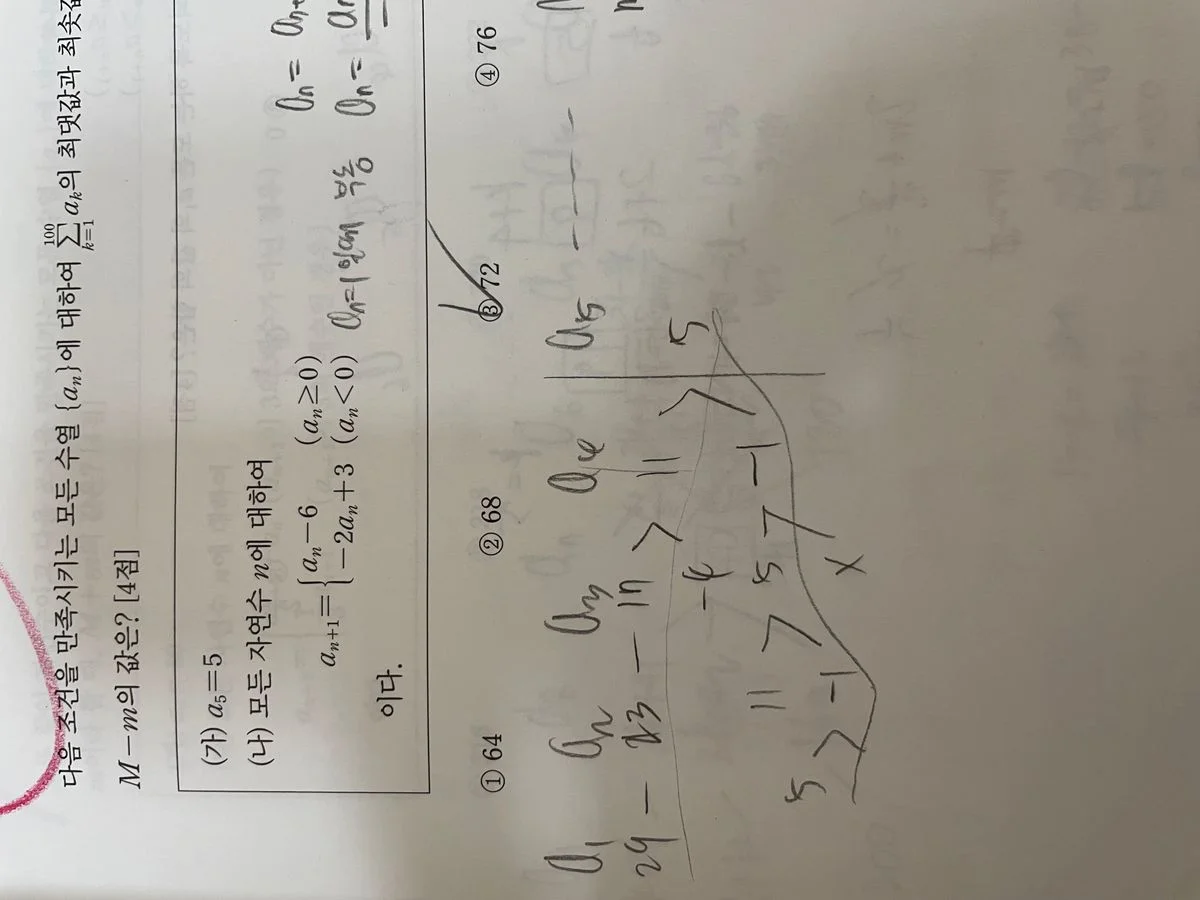 다음 조건을 만족시키는 모든 수열 {aₙ}에 대하여 \sum_{k=1}^{100} aₖ의 최댓값과 최솟값
M-m의 값은? [4점]
(가) a₅=5
(나) 모든 자연수 n에 대하여
aₙ₊₁={aₙ-6 (aₙ≥0)
-2aₙ+3 (aₙ<0)
이다.
aₙ=
aₙ=1일때 부등 aₙ=
① 64 ② 68 ③ 72 ④ 76
a₁ a₂ a₃ a₄ a₅ ----
29 - 23 - 17 > 11 > 5
-4
11 > 5 > -1
5 > -1 x